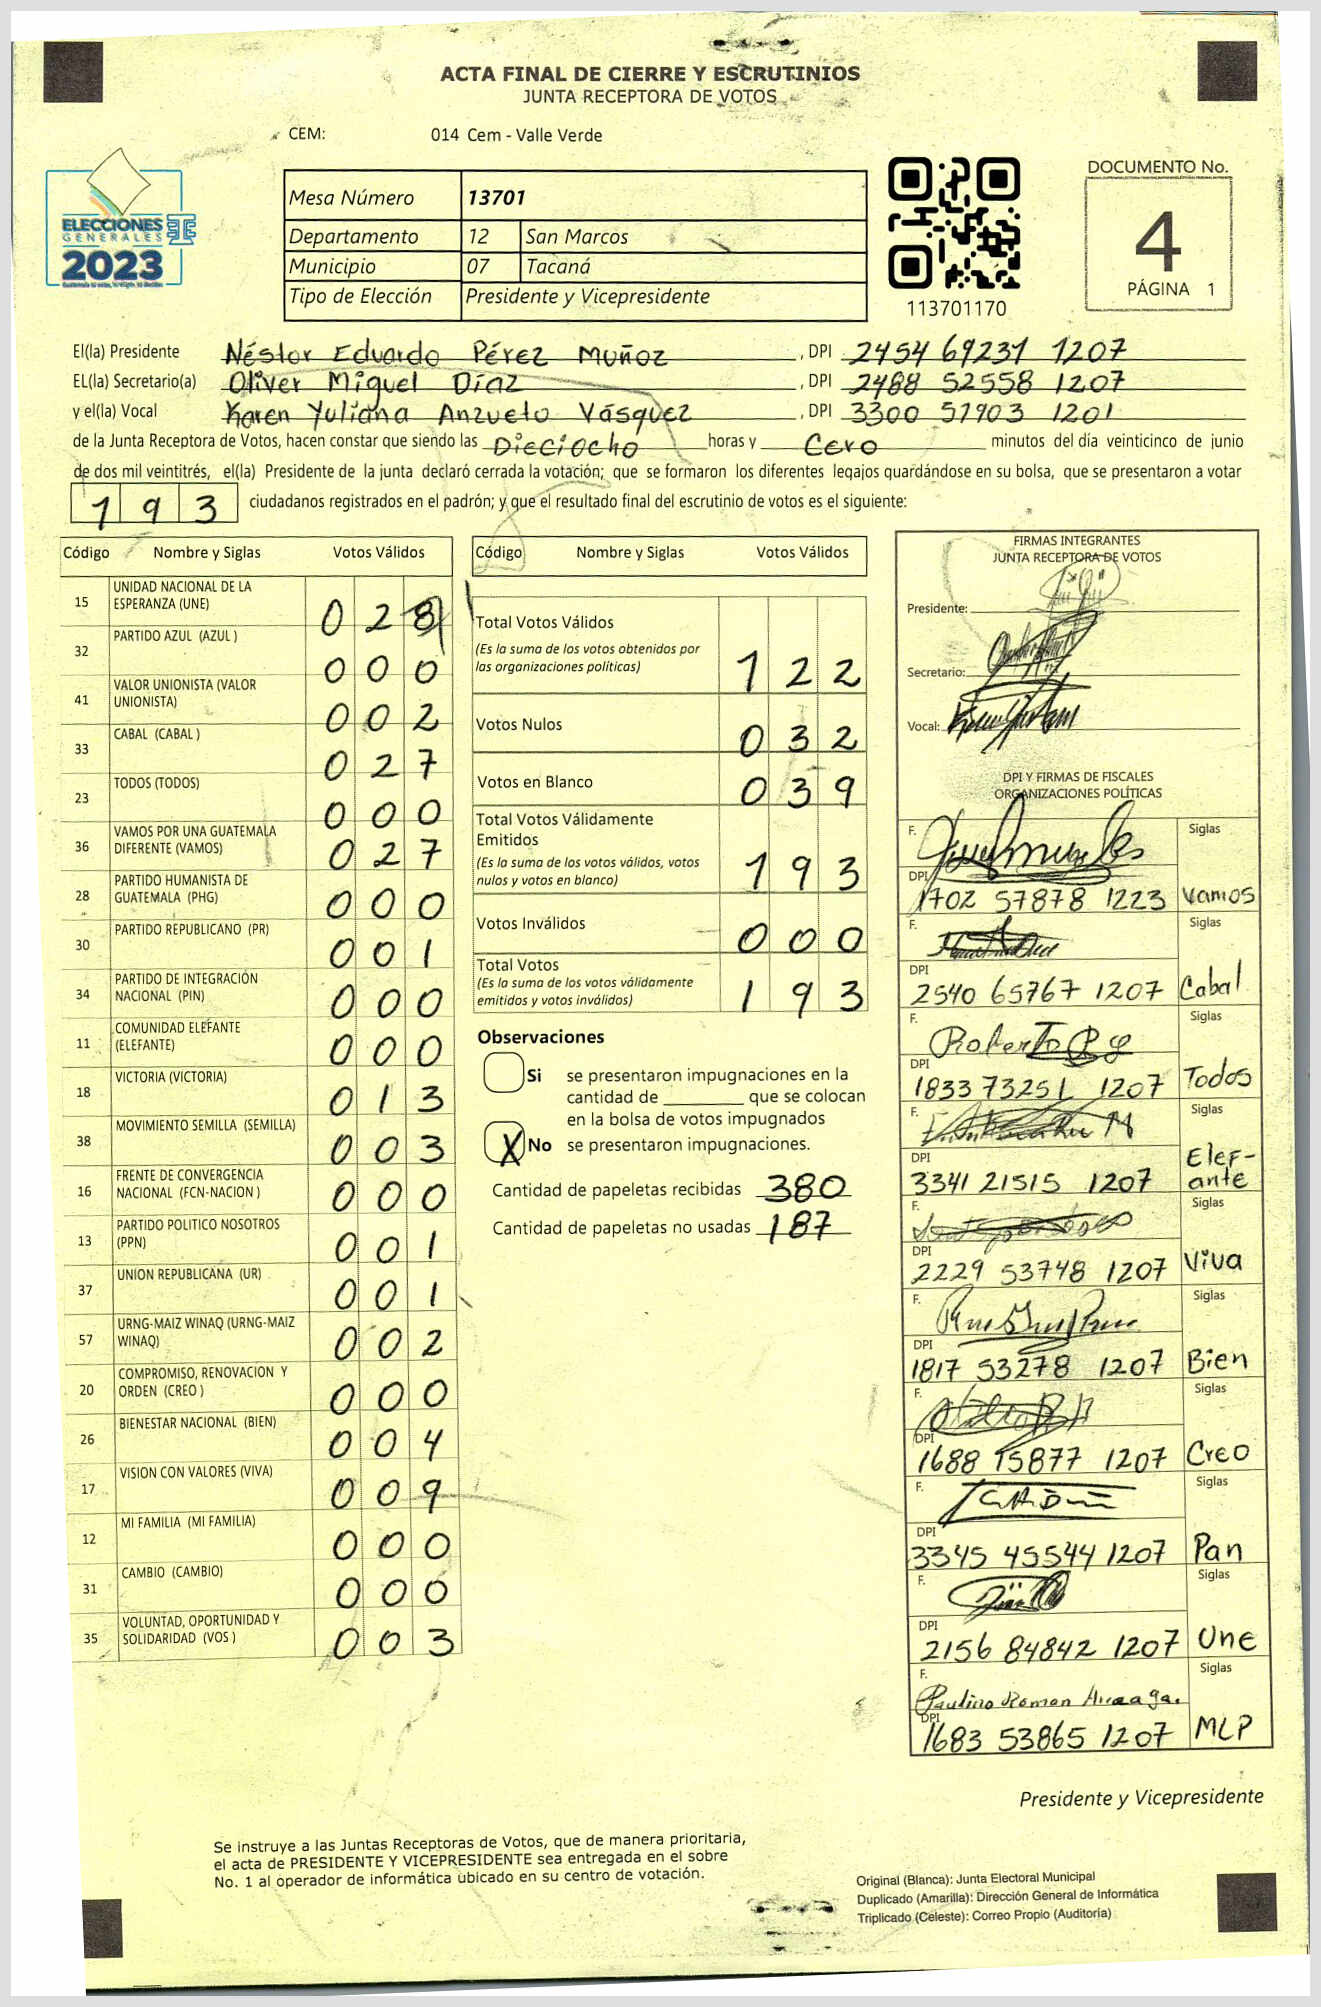 ACTA FINAL DE CIERRE Y ESCRUTINIOS
JUNTA RECEPTORA DE VOTOS
CEM: 014 Cem - Valle Verde
ELECCIONES
GENERALES
2023
Mesa Número 13701
Departamento 12 San Marcos
Municipio 07 Tacaná
Tipo de Elección Presidente y Vicepresidente
113701170
DOCUMENTO No.
4
PÁGINA 1
El(la) Presidente Néstor Eduardo Pérez Muñoz , DPI 2454 69231 1207
EL(la) Secretario(a) Oliver Miguel Díaz , DPI 2488 52558 1207
y el(la) Vocal Karen Yuliana Anzueto Vásquez , DPI 3300 57903 1201
de la Junta Receptora de Votos, hacen constar que siendo las Dieciocho horas y Cero minutos del día veinticinco de junio
de dos mil veintitrés, el(la) Presidente de la junta declaró cerrada la votación; que se formaron los diferentes legajos guardándose en su bolsa, que se presentaron a votar
193 ciudadanos registrados en el padrón; y que el resultado final del escrutinio de votos es el siguiente:
Código Nombre y Siglas Votos Válidos
15 UNIDAD NACIONAL DE LA ESPERANZA (UNE) 028
32 PARTIDO AZUL (AZUL ) 000
41 VALOR UNIONISTA (VALOR UNIONISTA) 002
33 CABAL (CABAL ) 027
23 TODOS (TODOS) 000
36 VAMOS POR UNA GUATEMALA DIFERENTE (VAMOS) 027
28 PARTIDO HUMANISTA DE GUATEMALA (PHG) 000
30 PARTIDO REPUBLICANO (PR) 001
34 PARTIDO DE INTEGRACIÓN NACIONAL (PIN) 000
11 COMUNIDAD ELEFANTE (ELEFANTE) 000
18 VICTORIA (VICTORIA) 013
38 MOVIMIENTO SEMILLA (SEMILLA) 003
16 FRENTE DE CONVERGENCIA NACIONAL (FCN-NACION ) 000
13 PARTIDO POLITICO NOSOTROS (PPN) 001
37 UNION REPUBLICANA (UR) 001
57 URNG-MAIZ WINAQ (URNG-MAIZ WINAQ) 002
20 COMPROMISO, RENOVACION Y ORDEN (CREO ) 000
26 BIENESTAR NACIONAL (BIEN) 004
17 VISION CON VALORES (VIVA) 009
12 MI FAMILIA (MI FAMILIA) 000
31 CAMBIO (CAMBIO) 000
35 VOLUNTAD, OPORTUNIDAD Y SOLIDARIDAD (VOS ) 003
Código Nombre y Siglas Votos Válidos
Total Votos Válidos
(Es la suma de los votos obtenidos por
las organizaciones políticas) 122
Votos Nulos 032
Votos en Blanco 039
Total Votos Válidamente
Emitidos
(Es la suma de los votos válidos, votos
nulos y votos en blanco) 193
Votos Inválidos 000
Total Votos
(Es la suma de los votos válidamente
emitidos y votos inválidos) 193
Observaciones
Si se presentaron impugnaciones en la
cantidad de ________ que se colocan
en la bolsa de votos impugnados
X No se presentaron impugnaciones.
Cantidad de papeletas recibidas 380
Cantidad de papeletas no usadas 187
FIRMAS INTEGRANTES
JUNTA RECEPTORA DE VOTOS
Presidente:
Secretario:
Vocal:
DPI Y FIRMAS DE FISCALES
ORGANIZACIONES POLÍTICAS
F. Siglas
DPI
1702 57878 1223 Vamos
F. Siglas
DPI
2540 65767 1207 Cabal
F. Roberto Siglas
DPI
1833 73251 1207 Todos
F. Siglas
DPI
3341 21515 1207 Elef-
ante
F. Siglas
DPI
2229 53748 1207 Viva
F. Siglas
DPI
1817 53278 1207 Bien
F. Siglas
DPI
1688 15877 1207 Creo
F. Siglas
DPI
3345 45544 1207 Pan
F. Siglas
DPI
2156 84842 1207 Une
F. Paulino Roman Siglas
DPI
1683 53865 1207 MLP
Presidente y Vicepresidente
Se instruye a las Juntas Receptoras de Votos, que de manera prioritaria,
el acta de PRESIDENTE Y VICEPRESIDENTE sea entregada en el sobre
No. 1 al operador de informática ubicado en su centro de votación.
Original (Blanca): Junta Electoral Municipal
Duplicado (Amarilla): Dirección General de Informática
Triplicado (Celeste): Correo Propio (Auditoría)